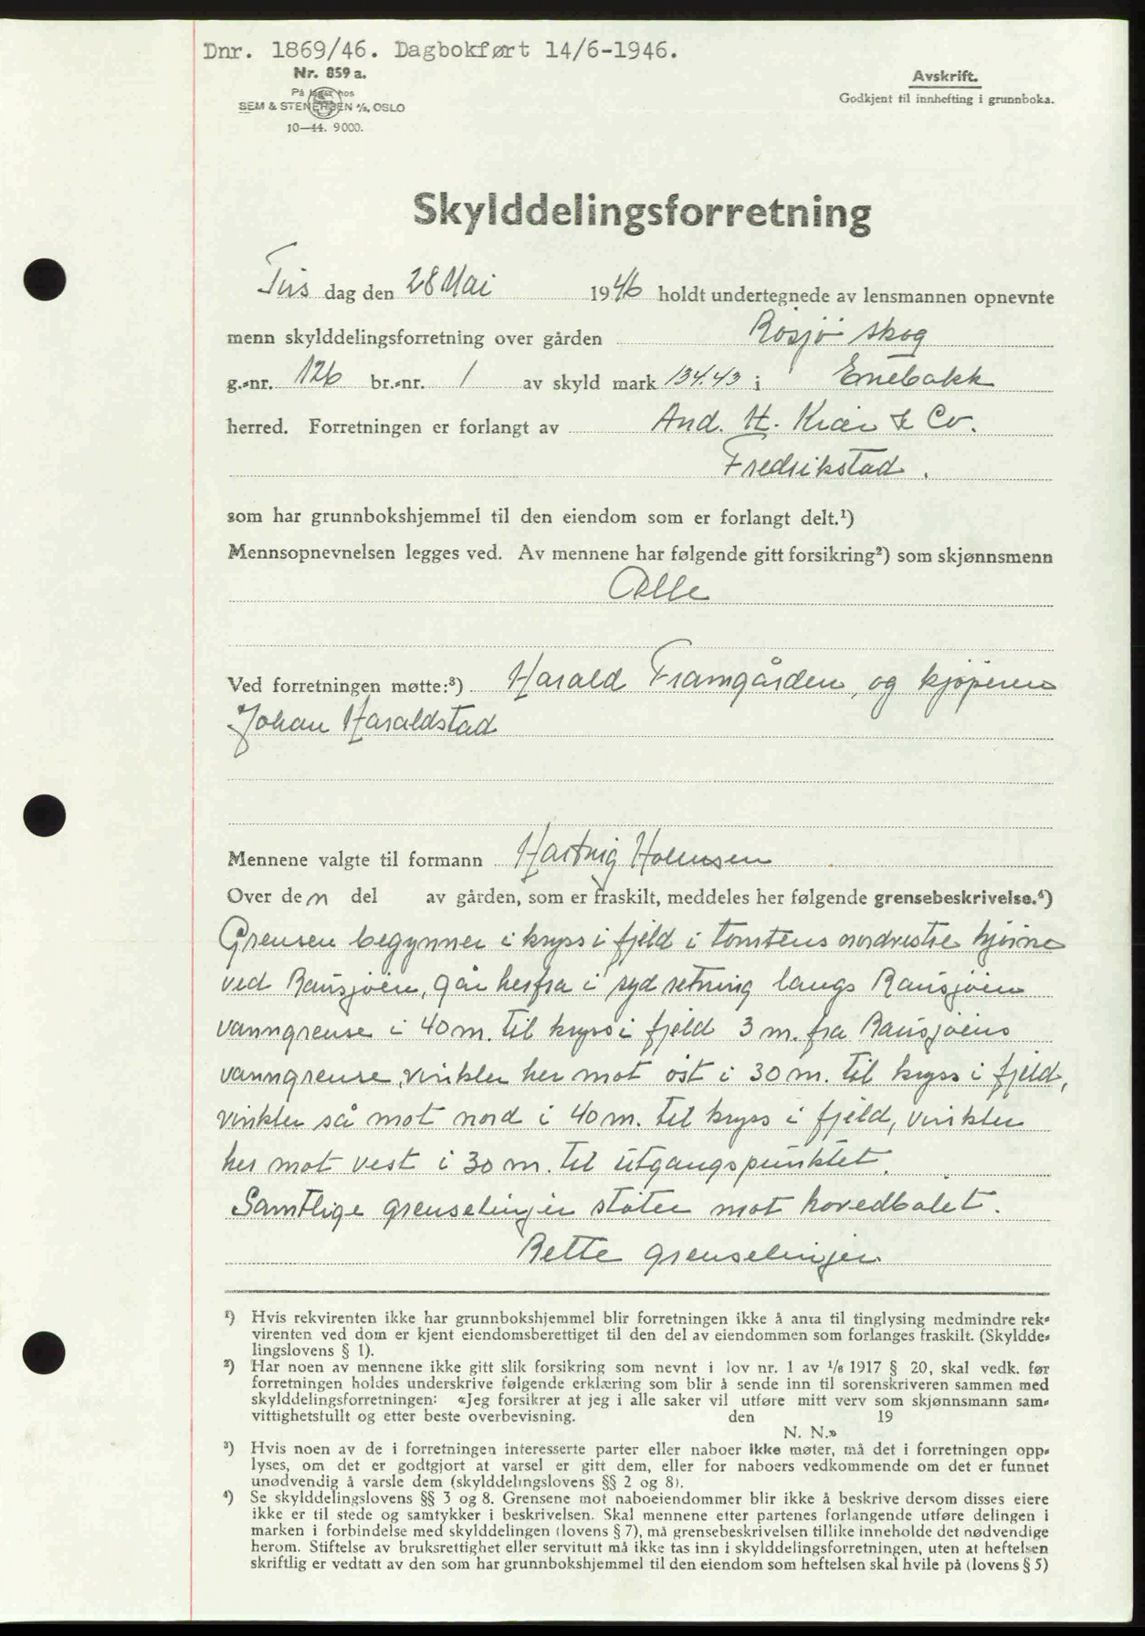 Dnr. 1869/46. Dagbokført 14/6-1946.
Nr. 859 a.
På lager hos
SEM & STENERSEN A/S, OSLO
10—44. 9000.
Avskrift.
Godkjent til innhefting i grunnboka.
Skylddelingsforretning
Tirs dag den 28 Mai 1946 holdt undertegnede av lensmannen opnevnte
menn skylddelingsforretning over gården Rösjö skog
g.-nr. 126 br.-nr. 1 av skyld mark 134.43 i Enebakk
herred. Forretningen er forlangt av And. H. Kiær & Co.
Fredrikstad.
som har grunnbokshjemmel til den eiendom som er forlangt delt.¹)
Mennsopnevnelsen legges ved. Av mennene har følgende gitt forsikring²) som skjønnsmenn
Alle
Ved forretningen møtte:³) Harald Framgården, og kjøperen
Johan Haraldstad
Mennene valgte til formann Hartvig Holmsen
Over den del av gården, som er fraskilt, meddeles her følgende grensebeskrivelse.⁴)
Grensen begynner i kryss i fjeld i tomtens nordvestre hjörne
ved Rausjöen, går herfra i syd retning langs Rausjöen
vanngrense i 40 m. til kryss i fjeld 3 m. fra Rausjöens
vanngrense, vinkler her mot öst i 30 m. til kryss i fjeld,
vinkler så mot nord i 40 m. til kryss i fjeld, vinkler
her mot vest i 30 m. til utgangspunktet.
Samtlige grenselinjer støter mot hovedbölet.
Rette grenselinjer
¹) Hvis rekvirenten ikke har grunnbokshjemmel blir forretningen ikke å anta til tinglysing medmindre rek-
virenten ved dom er kjent eiendomsberettiget til den del av eiendommen som forlanges fraskilt. (Skyldde-
lingslovens § 1).
²) Har noen av mennene ikke gitt slik forsikring som nevnt i lov nr. 1 av 1/6 1917 § 20, skal vedk. før
forretningen holdes underskrive følgende erklæring som blir å sende inn til sorenskriveren sammen med
skylddelingsforretningen: «Jeg forsikrer at jeg i alle saker vil utføre mitt verv som skjønnsmann sam-
vittighetsfullt og etter beste overbevisning. den 19
N. N.»
³) Hvis noen av de i forretningen interesserte parter eller naboer ikke møter, må det i forretningen opp-
lyses, om det er godtgjort at varsel er gitt dem, eller for naboers vedkommende om det er funnet
unødvendig å varsle dem (skylddelingslovens §§ 2 og 8).
⁴) Se skylddelingslovens §§ 3 og 8. Grensene mot naboeiendommer blir ikke å beskrive dersom disses eiere
ikke er til stede og samtykker i beskrivelsen. Skal mennene etter partenes forlangende utføre delingen i
marken i forbindelse med skylddelingen (lovens § 7), må grensebeskrivelsen tillike inneholde det nødvendige
herom. Stiftelse av bruksrettighet eller servitutt må ikke tas inn i skylddelingsforretningen, uten at heftelsen
skriftlig er vedtatt av den som har grunnbokshjemmel til den eiendom som heftelsen skal hvile på (lovens § 5)